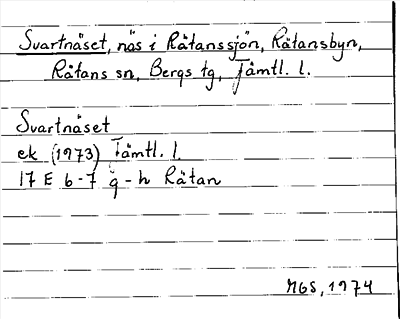 Svartnäset, näs i Rätanssjön, Rätansbyn,
Rätans sn, Bergs tg, Jämtl. l.
Svartnäset
ek (1973) Jämtl. l.
17 E 6-7 g-h Rätan
MGS, 1974